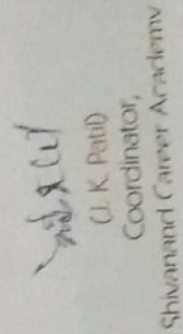 (J. K. Patil)
Coordinator,
Shivanand Career Academy